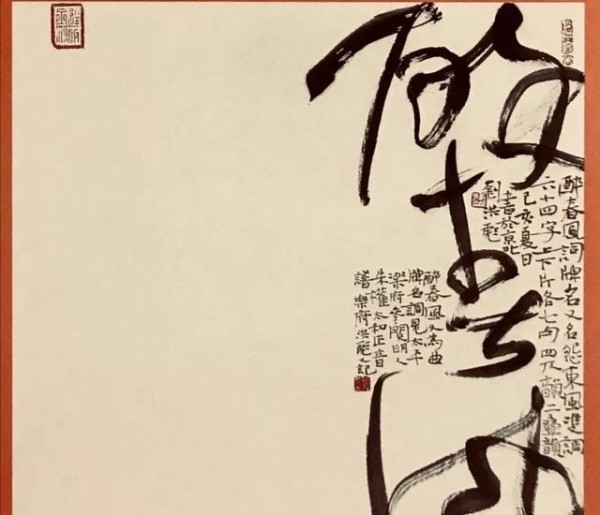 醉春風
醉春風詞牌名又名怨東風進調
六十四字上下片各七句四仄韻二疊韻
己亥夏日
書於京北
劉洪彪
醉春風又為曲
牌名調見太平
樂府參閱明人
朱權太和正音
譜樂府洪彪記